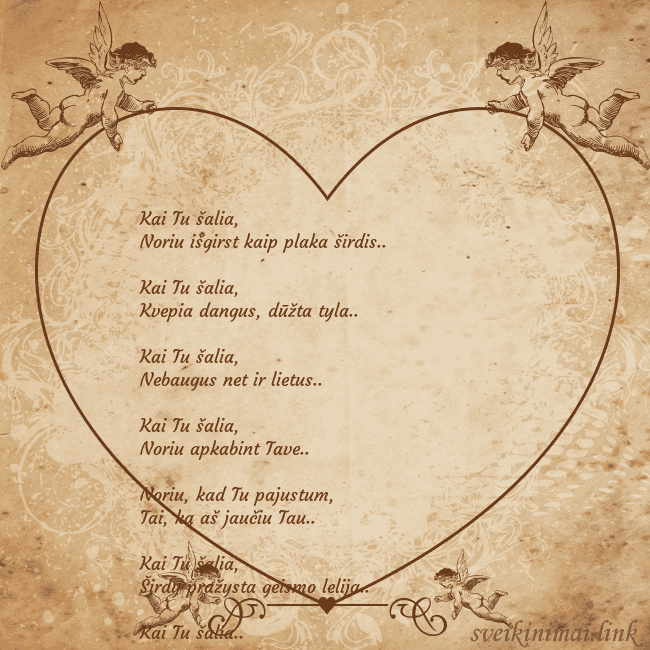 Kai Tu šalia,
Noriu išgirst kaip plaka širdis..
Kai Tu šalia,
Kvepia dangus, dūžta tyla..
Kai Tu šalia,
Nebaugus net ir lietus..
Kai Tu šalia,
Noriu apkabint Tave..
Noriu, kad Tu pajustum,
Tai, ką aš jaučiu Tau..
Kai Tu šalia,
Širdy pražysta geismo lelija..
Kai Tu šalia..
sveikinimai.link